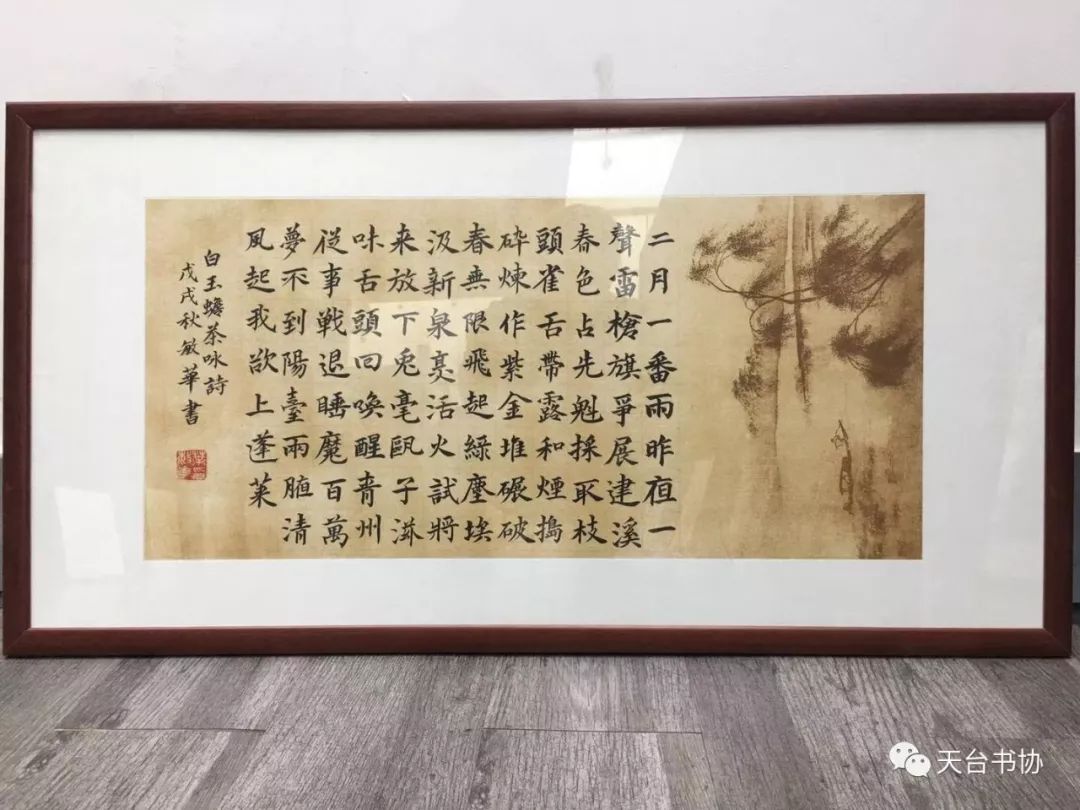 二月一番雨昨夜一
聲雷槍旗爭展建溪
春色占先魁採取枝
頭雀舌帶露和煙搗
碎煉作紫金堆碾破
春無限飛起綠塵埃
汲新泉烹活火試將
来放下兔毫甌子滋
味舌頭回喚醒青州
從事戰退睡魔百萬
夢不到陽臺兩腋清
風起我欲上蓬萊
白玉蟾茶咏詩
戊戌秋敏華書
天台书协